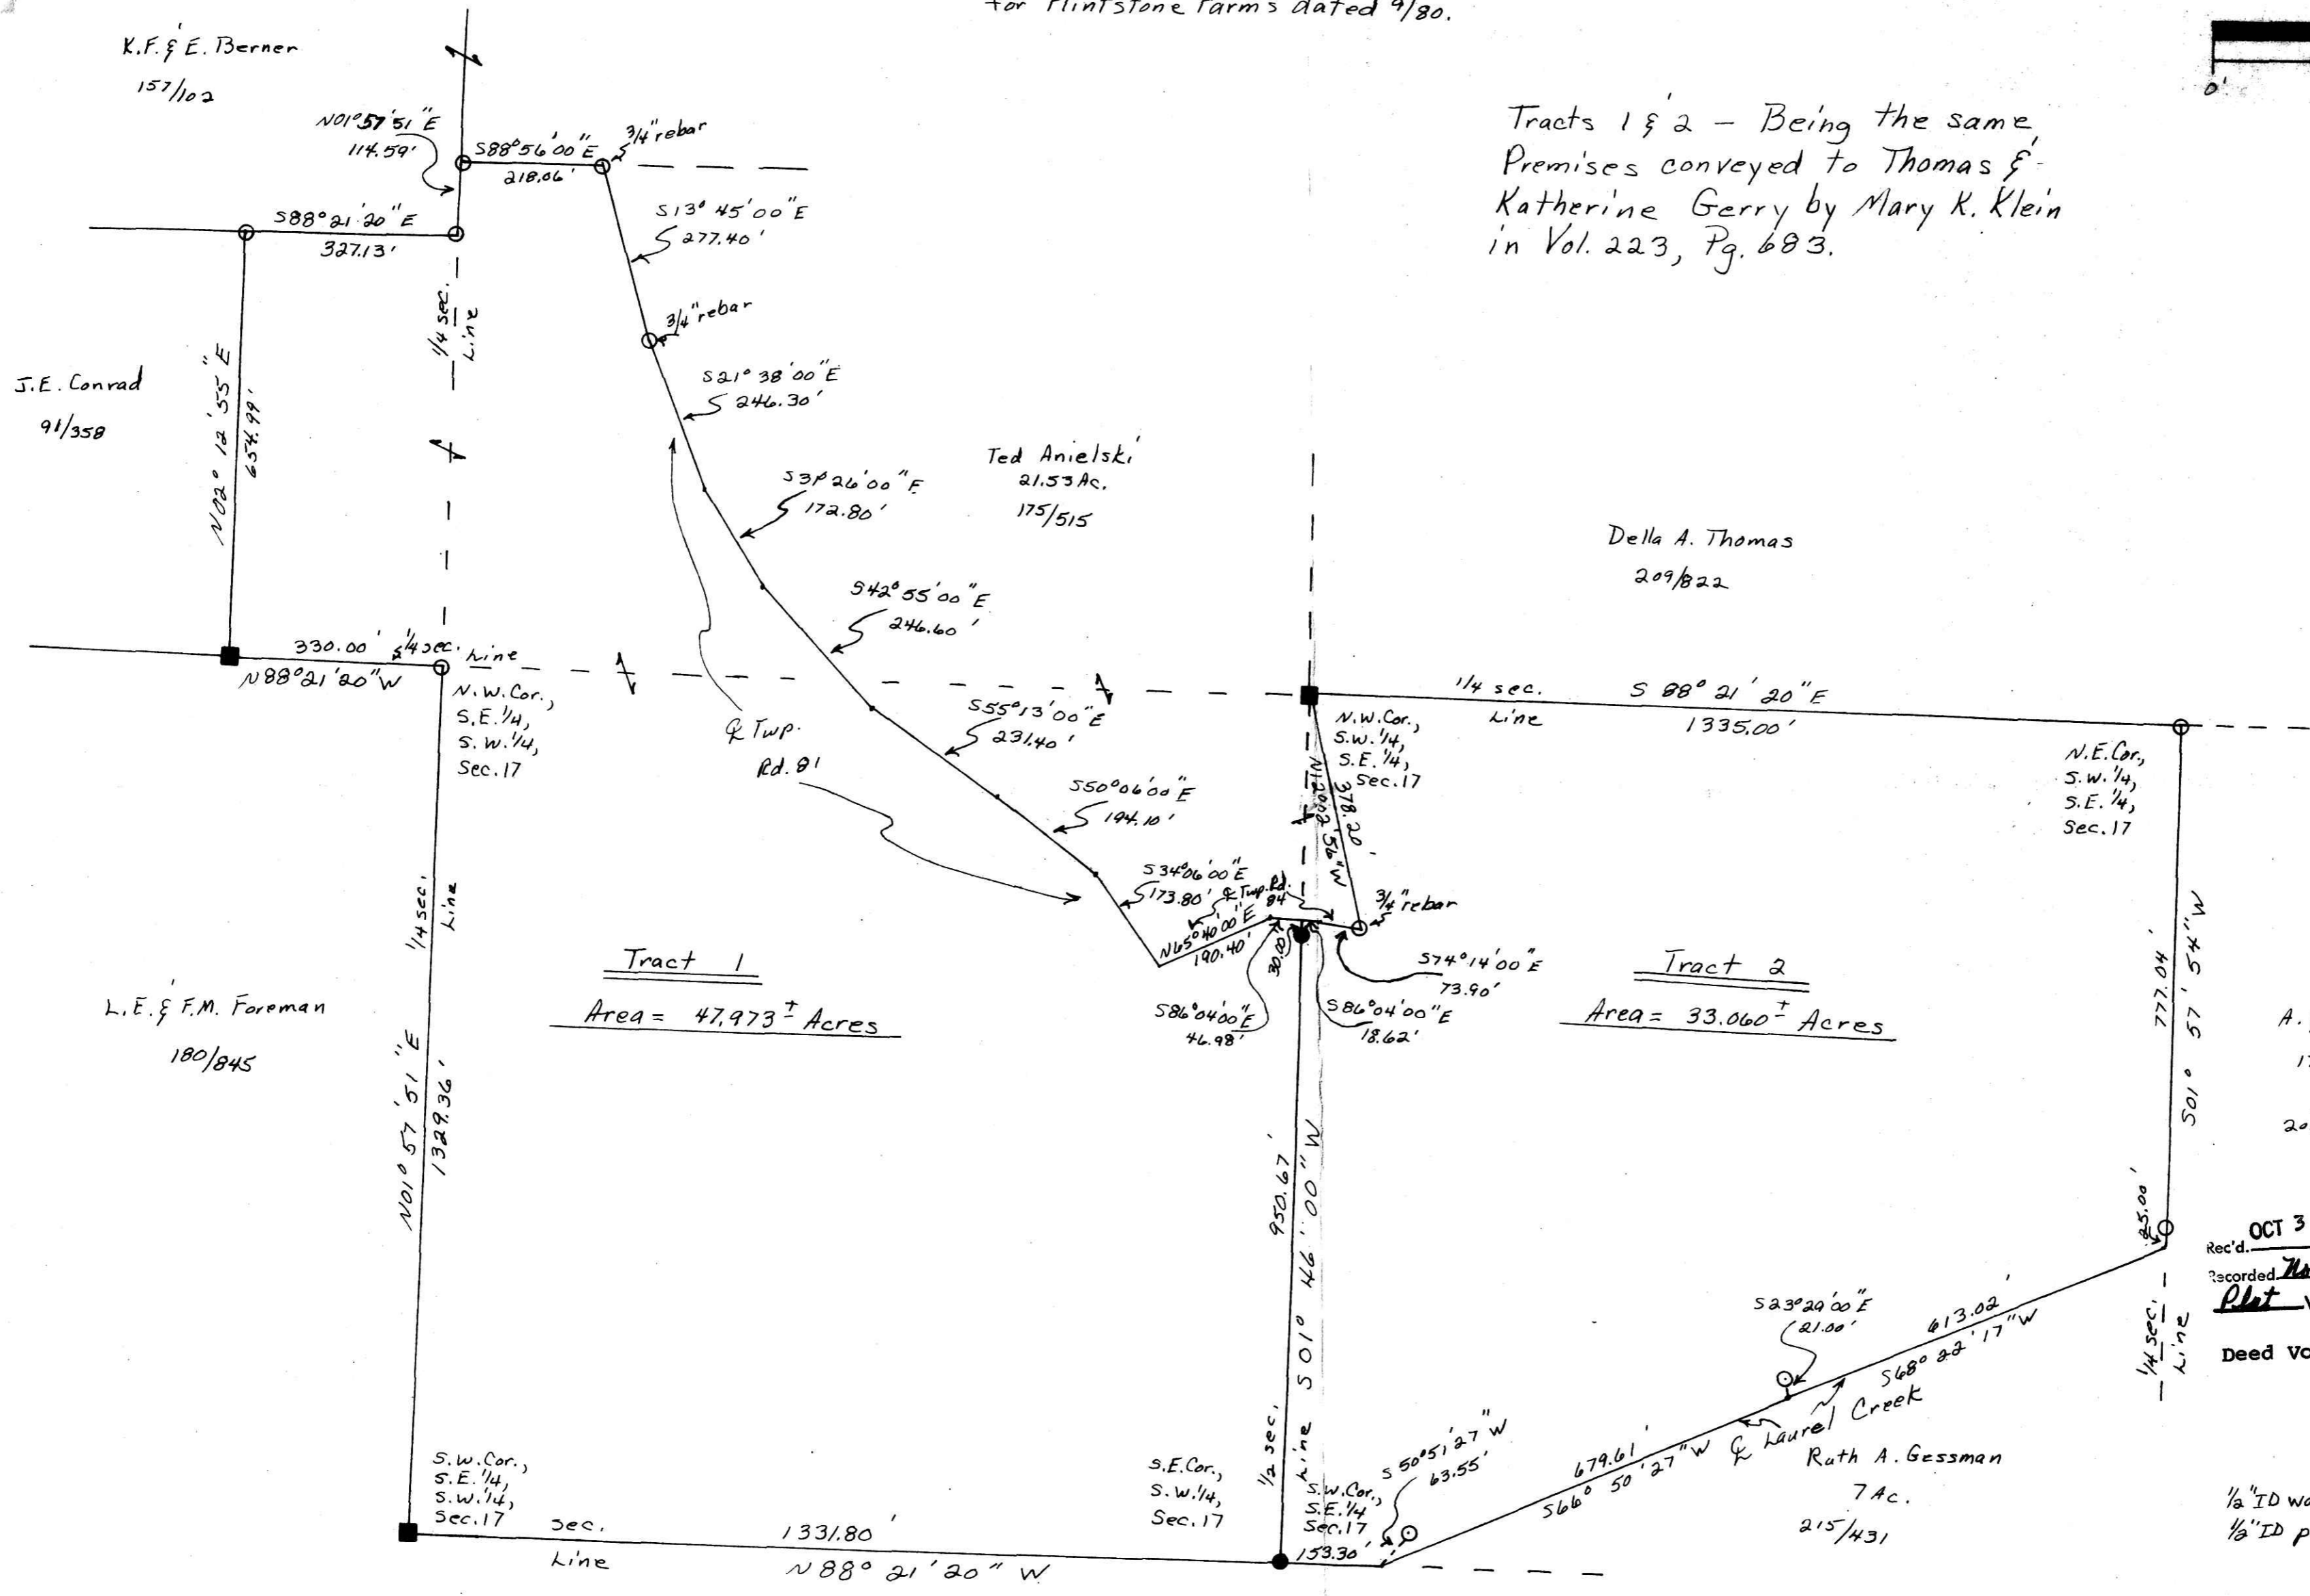 for Flintstone Farms dated 9/80.
K.F. & E. Berner
157/102
0'
Tracts 1 & 2 — Being the same
Premises conveyed to Thomas &
Katherine Gerry by Mary K. Klein
in Vol. 223, Pg. 683.
N01°57'51"E
114.59'
S88°56'00"E
218.06'
3/4" rebar
S88°21'20"E
327.13'
S13°45'00"E
277.40'
3/4" rebar
1/4 sec.
Line
J.E. Conrad
91/358
N02°12'55"E
654.99'
S21°38'00"E
246.30'
Ted Anielski
21.53 Ac.
175/515
S31°26'00"E
172.80'
Della A. Thomas
209/822
S42°55'00"E
246.60'
330.00'
1/4 sec. Line
N88°21'20"W
N.W. Cor.,
S.E. 1/4,
S.W. 1/4,
Sec. 17
S55°13'00"E
231.40'
℄ Twp.
Rd. 81
1/4 sec.
Line
S 88° 21' 20" E
1335.00'
N.W. Cor.,
S.W. 1/4,
S.E. 1/4,
Sec. 17
N.E. Cor.,
S.W. 1/4,
S.E. 1/4,
Sec. 17
S50°06'00"E
194.10'
N12°02'56"W
378.20'
S34°06'00"E
173.80'
℄ Twp. Rd.
84
3/4" rebar
N65°40'00"E
190.40'
30.00'
S74°14'00"E
73.90'
S86°04'00"E
46.98'
S86°04'00"E
18.62'
1/4 sec.
Line
Tract 1
Area = 47.973 ± Acres
Tract 2
Area = 33.060 ± Acres
L.E. & F.M. Foreman
180/845
N01°57'51"E
1329.36'
777.04'
S01°57'54"W
A.
950.67'
S 01° 46' 00" W
1/2 sec.
Line
25.00'
OCT 3
Rec'd.
Recorded
Plat
Deed Vo
1/4 sec.
Line
S23°29'00"E
21.00'
613.02'
S68°22'17"W
℄ Laurel Creek
679.61'
S66°50'27"W
S50°51'27"W
63.55'
Ruth A. Gessman
7 Ac.
215/431
S.W. Cor.,
S.E. 1/4,
S.W. 1/4,
Sec. 17
S.E. Cor.,
S.W. 1/4,
Sec. 17
S.W. Cor.,
S.E. 1/4
Sec. 17
153.30'
sec.
Line
1331.80'
N88°21'20"W
1/2" ID
1/2" ID p